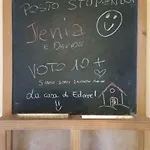 POSTO STUPENDO!
Jenia
e Davide
VOTO 10+
La casa di Edoné!